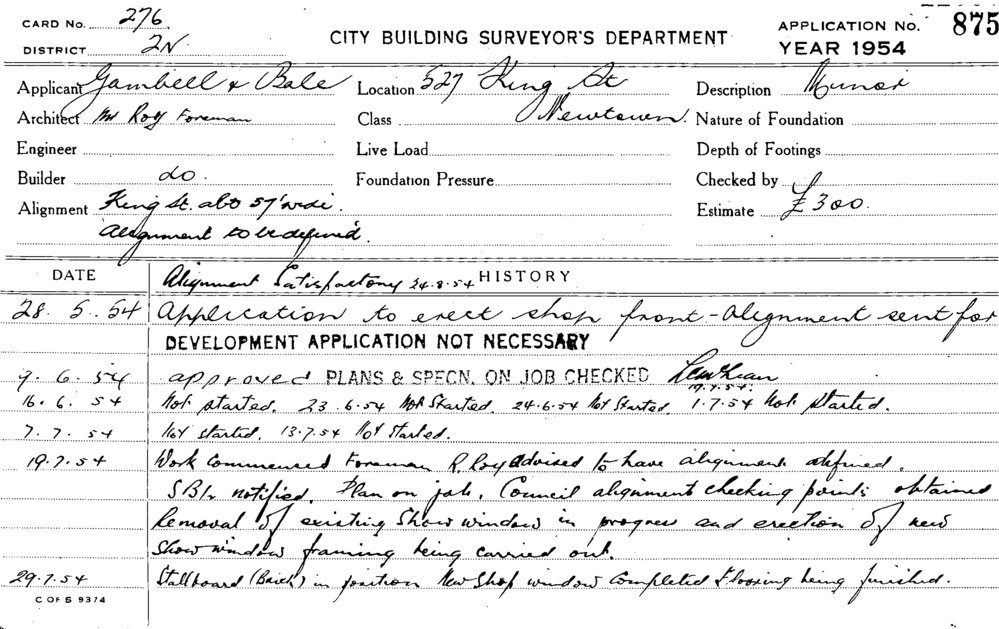 CARD No. 276
DISTRICT 2N
CITY BUILDING SURVEYOR'S DEPARTMENT
APPLICATION No. 875
YEAR 1954
Applicant Gambell & Bale
Location 527 King St
Newtown
Description Minor
Architect Mr Roy Foreman
Class
Nature of Foundation
Engineer
Live Load
Depth of Footings
Builder do.
Foundation Pressure
Checked by
Alignment King St. abt 57' wide.
Estimate £300.
Alignment to be defined.
DATE
HISTORY
Alignment Satisfactory 24.8.54
28. 5. 54 Application to erect shop front - Alignment sent for
DEVELOPMENT APPLICATION NOT NECESSARY
9. 6. 54 approved PLANS & SPECN. ON JOB CHECKED
19.7.54.
16. 6. 54 Not started. 23.6.54 Not Started. 24.6.54 Not Started 1.7.54 Not Started.
7. 7. 54 Not started. 13.7.54 Not Started.
19.7.54 Work Commenced Foreman R. Roy advised to have alignment defined.
notified. Plan on job. Council alignment checking points obtained
Removal of existing Show window in progress and erection of new
Show window framing being carried out.
29.7.54 Stallboard (Brick) in position New Shop window Completed Flooring being finished.
C OF S 9374